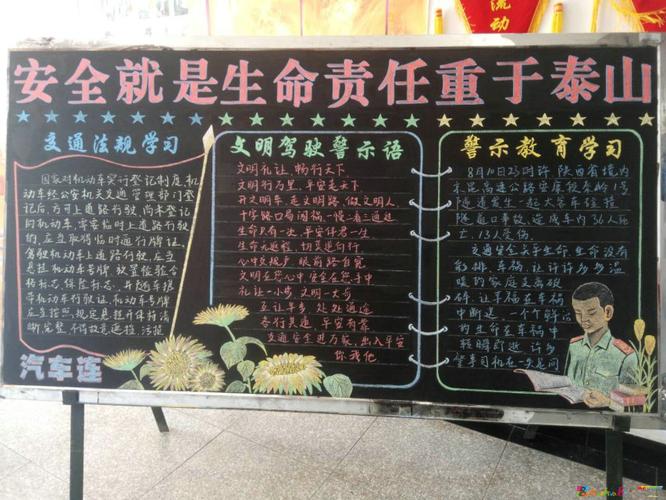 流动
安全就是生命责任重于泰山
交通法规学习
国家对机动车实行登记制度,机
动车经公安机关交通管理部门登
记后,方可上道路行驶,尚未登记
的机动车,需要临时上道路行驶
的,应当取得临时通行牌证。
驾驶机动车上道路行驶,应当
悬挂机动车号牌,放置检验合
格标志,保险标志,并随车携
带机动车行驶证,机动车号牌
应当按照规定悬挂并保持清
晰,完整,不得故意遮挡,污损
汽车连
文明驾驶警示语
文明礼让,畅行天下
文明行万里,平安走天下
开文明车,走文明路,做文明人
十字路口莫闯祸,一慢二看三通过
生命只有一次,平安伴君一生
生命无返程,切莫逆向行
文明在您心中安全在您手中
礼让一小步,文明一大步
互让半步,处处通途
各行其道,平安有靠
交通安全进万家,出入平安
你我他
警示教育学习
8月10日23时许,陕西省境内
京昆高速公路安康段秦岭1号
隧道发生一起大客车碰撞
隧道口事故,造成车内36人死
亡,13人受伤。
交通安全关乎生命,生命没有
彩排,车祸,让许许多多温
暖的家庭支离破
碎,让幸福在车祸
中断送,一个个鲜活
的生命在车祸中
轻瞬即逝,许多
肇事司机在一失足间